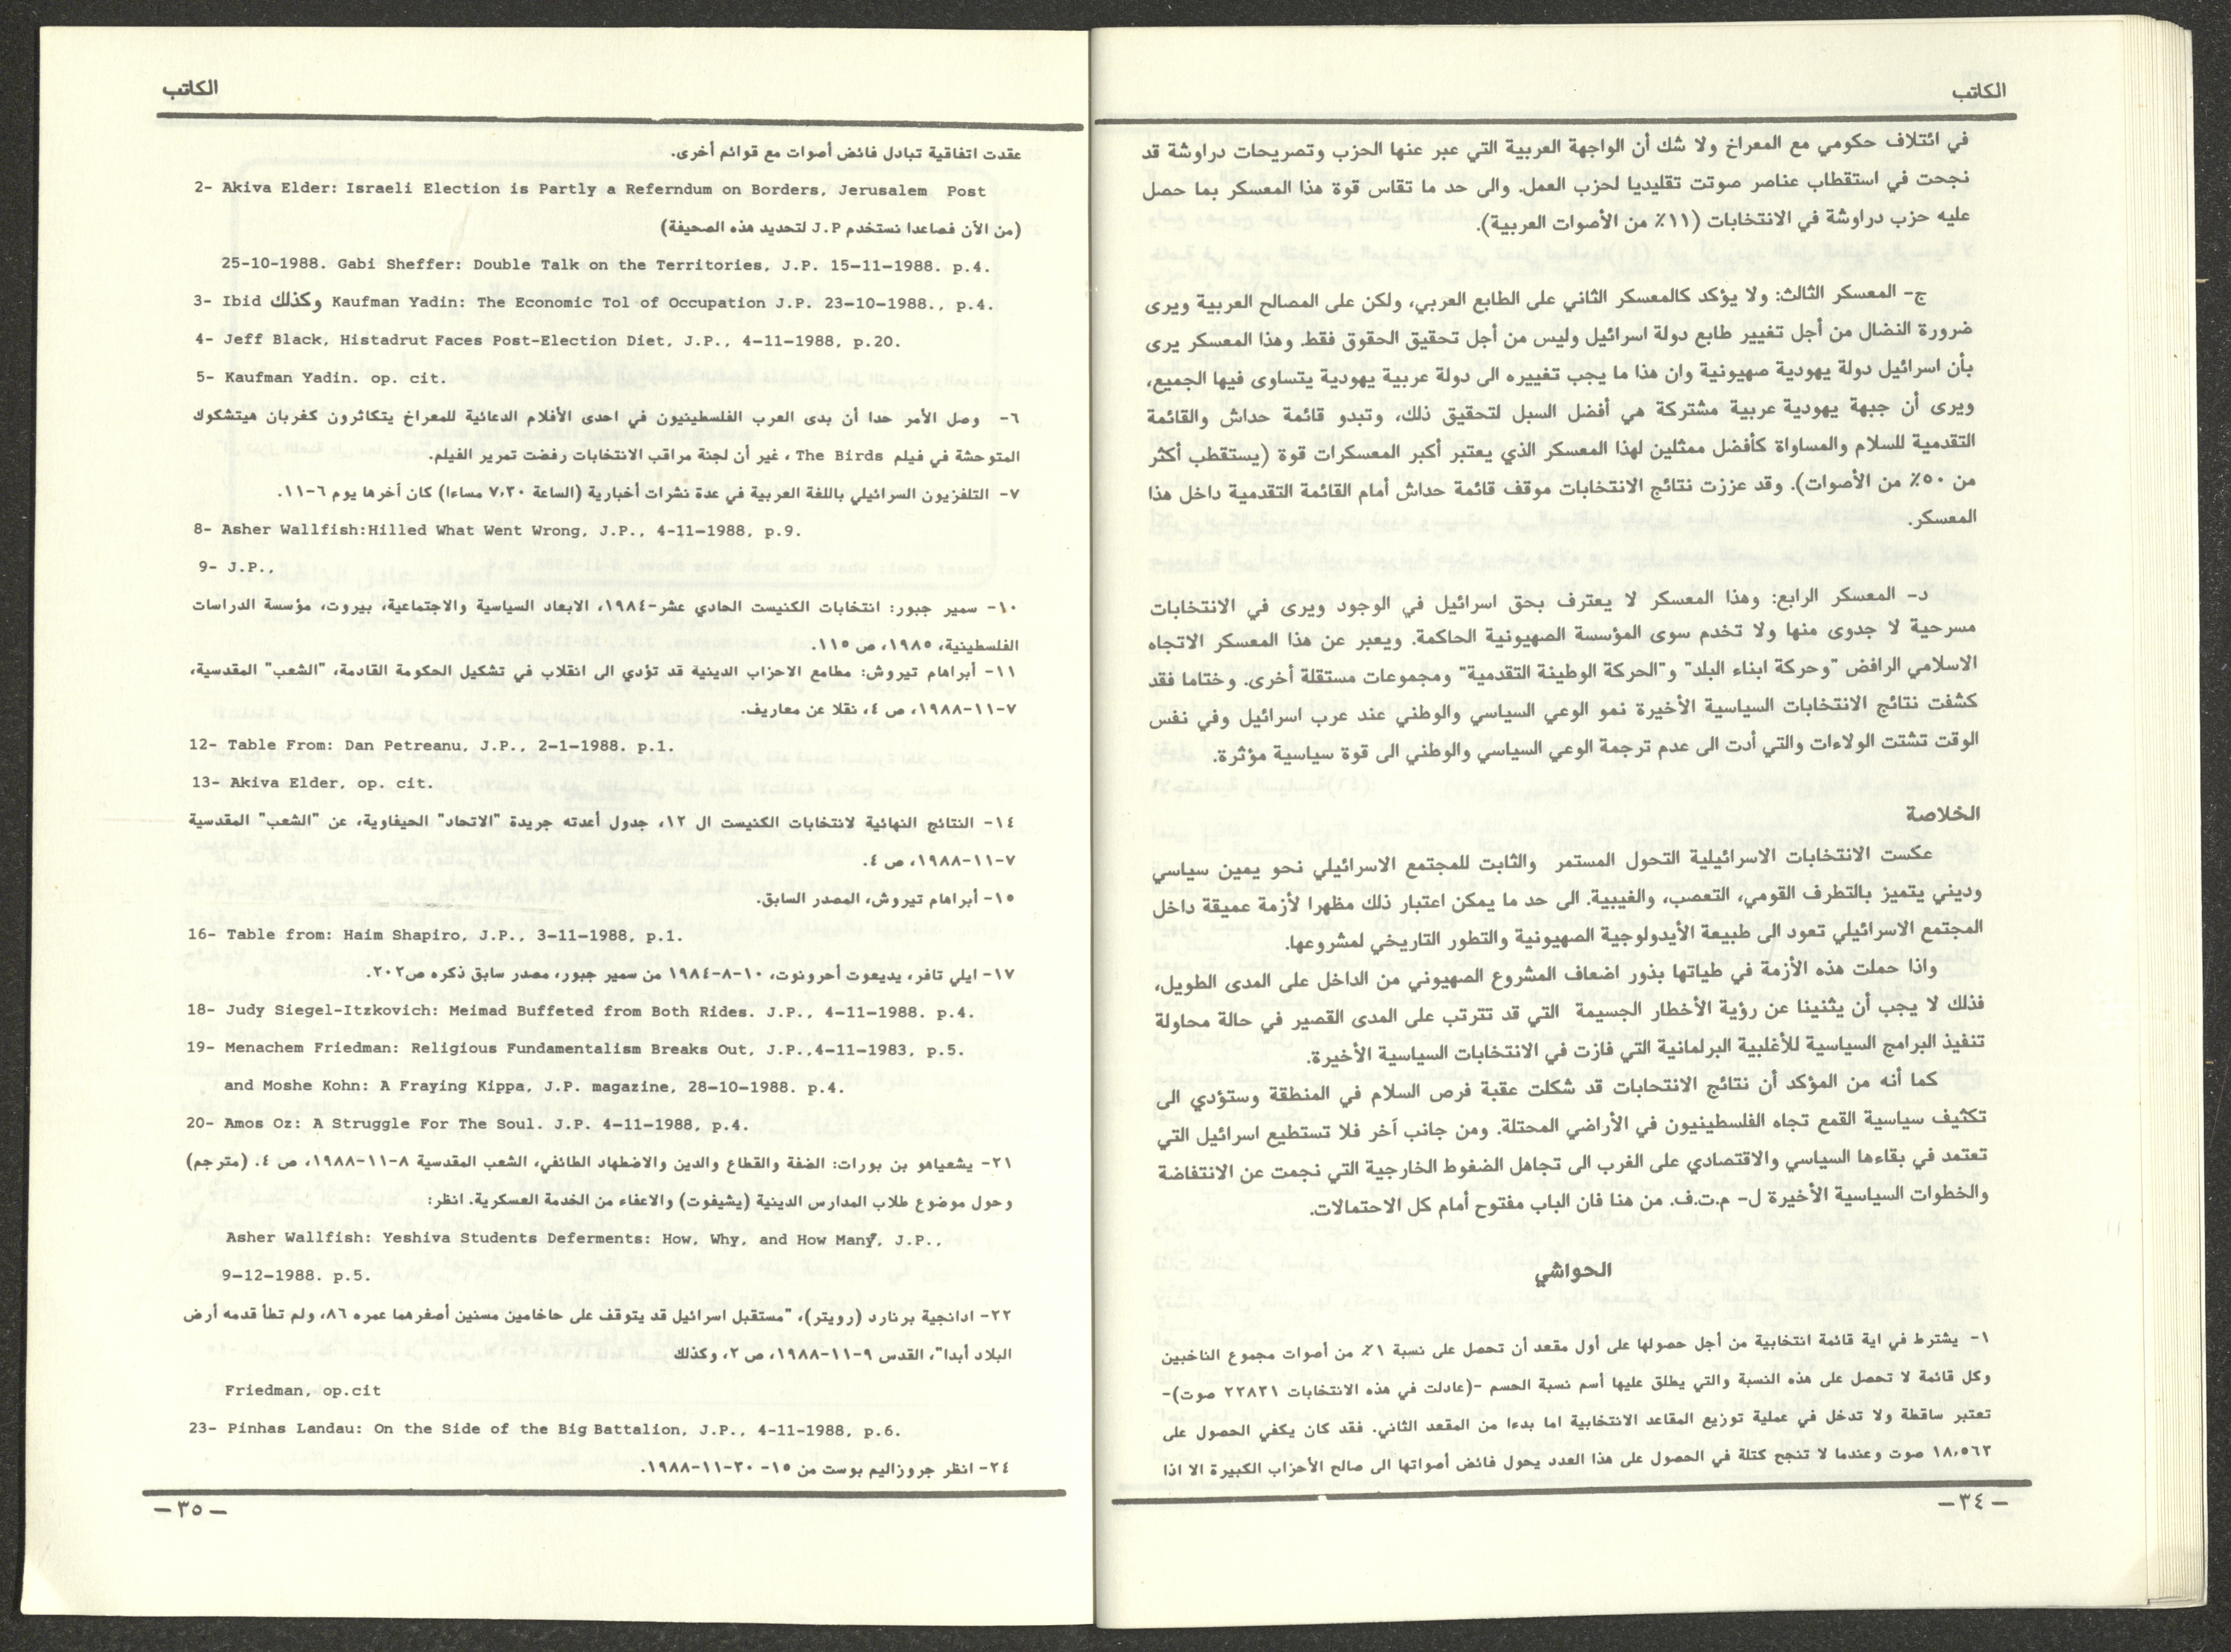 الكاتب
في ائتلاف حكومي مع المعراخ ولا شك أن الواجهة العربية التي عبر عنها الحزب وتصريحات دراوشة قد
نجحت في استقطاب عناصر صوتت تقليديا لحزب العمل. والى حد ما تقاس قوة هذا المعسكر بما حصل
عليه حزب دراوشة في الانتخابات (١١٪ من الأصوات العربية).
ج- المعسكر الثالث: ولا يؤكد كالمعسكر الثاني على الطابع العربي، ولكن على المصالح العربية ويرى
ضرورة النضال من أجل تغيير طابع دولة اسرائيل وليس من أجل تحقيق الحقوق فقط. وهذا المعسكر يرى
بأن اسرائيل دولة يهودية صهيونية وان هذا ما يجب تغييره الى دولة عربية يهودية يتساوى فيها الجميع،
ويرى أن جبهة يهودية عربية مشتركة هي أفضل السبل لتحقيق ذلك، وتبدو قائمة حداش والقائمة
التقدمية للسلام والمساواة كأفضل ممثلين لهذا المعسكر الذي يعتبر أكبر المعسكرات قوة (يستقطب أكثر
من ٥٠٪ من الأصوات). وقد عززت نتائج الانتخابات موقف قائمة حداش أمام القائمة التقدمية داخل هذا
المعسكر.
د- المعسكر الرابع: وهذا المعسكر لا يعترف بحق اسرائيل في الوجود ويرى في الانتخابات
مسرحية لا جدوى منها ولا تخدم سوى المؤسسة الصهيونية الحاكمة. ويعبر عن هذا المعسكر الاتجاه
الاسلامي الرافض "وحركة ابناء البلد" و"الحركة الوطينة التقدمية" ومجموعات مستقلة أخرى. وختاما فقد
كشفت نتائج الانتخابات السياسية الأخيرة نمو الوعي السياسي والوطني عند عرب اسرائيل وفي نفس
الوقت تشتت الولاءات والتي أدت الى عدم ترجمة الوعي السياسي والوطني الى قوة سياسية مؤثرة.
الخلاصة
عكست الانتخابات الاسرائيلية التحول المستمر والثابت للمجتمع الاسرائيلي نحو يمين سياسي
وديني يتميز بالتطرف القومي، التعصب، والغيبية. الى حد ما يمكن اعتبار ذلك مظهرا لأزمة عميقة داخل
المجتمع الاسرائيلي تعود الى طبيعة الأيدولوجية الصهيونية والتطور التاريخي لمشروعها.
واذا حملت هذه الأزمة في طياتها بذور اضعاف المشروع الصهيوني من الداخل على المدى الطويل،
فذلك لا يجب أن يثنينا عن رؤية الأخطار الجسيمة التي قد تترتب على المدى القصير في حالة محاولة
تنفيذ البرامج السياسية للأغلبية البرلمانية التي فازت في الانتخابات السياسية الأخيرة.
كما أنه من المؤكد أن نتائج الانتحابات قد شكلت عقبة فرص السلام في المنطقة وستؤدي الى
تكثيف سياسية القمع تجاه الفلسطينيون في الأراضي المحتلة. ومن جانب آخر فلا تستطيع اسرائيل التي
تعتمد في بقاءها السياسي والاقتصادي على الغرب الى تجاهل الضغوط الخارجية التي نجمت عن الانتفاضة
والخطوات السياسية الأخيرة ل- م.ت.ف. من هنا فان الباب مفتوح أمام كل الاحتمالات.
الحواشي
١- يشترط في اية قائمة انتخابية من أجل حصولها على أول مقعد أن تحصل على نسبة ١٪ من أصوات مجموع الناخبين
وكل قائمة لا تحصل على هذه النسبة والتي يطلق عليها أسم نسبة الحسم -(عادلت في هذه الانتخابات ٢٢٨٣١ صوت)-
تعتبر ساقطة ولا تدخل في عملية توزيع المقاعد الانتخابية اما بدءا من المقعد الثاني. فقد كان يكفي الحصول على
١٨،٥٦٣ صوت وعندما لا تنجح كتلة في الحصول على هذا العدد يحول فائض أصواتها الى صالح الأحزاب الكبيرة الا اذا
-٣٤-
الكاتب
عقدت اتفاقية تبادل فائض أصوات مع قوائم أخرى.
2- Akiva Elder: Israeli Election is Partly a Referndum on Borders, Jerusalem Post
(من الأن فصاعدا نستخدم J.P لتحديد هذه الصحيفة)
25-10-1988. Gabi Sheffer: Double Talk on the Territories, J.P. 15-11-1988. p.4.
3- Ibid وكذلك Kaufman Yadin: The Economic Tol of Occupation J.P. 23-10-1988., p.4.
4- Jeff Black, Histadrut Faces Post-Election Diet, J.P., 4-11-1988, p.20.
5- Kaufman Yadin. op. cit.
٦- وصل الأمر حدا أن بدى العرب الفلسطينيون في احدى الأفلام الدعائية للمعراخ يتكاثرون كغربان هيتشكوك
المتوحشة في فيلم The Birds ، غير أن لجنة مراقب الانتخابات رفضت تمرير الفيلم.
٧- التلفزيون السرائيلي باللغة العربية في عدة نشرات أخبارية (الساعة ٧،٣٠ مساءا) كان أخرها يوم ٦-١١.
8- Asher Wallfish:Hilled What Went Wrong, J.P., 4-11-1988, p.9.
9- J.P.,
١٠- سمير جبور: انتخابات الكنيست الحادي عشر-١٩٨٤، الابعاد السياسية والاجتماعية، بيروت، مؤسسة الدراسات
الفلسطينية، ١٩٨٥، ص ١١٥.
١١- أبراهام تيروش: مطامع الاحزاب الدينية قد تؤدي الى انقلاب في تشكيل الحكومة القادمة، "الشعب" المقدسية،
٧-١١-١٩٨٨، ص ٤، نقلا عن معاريف.
12- Table From: Dan Petreanu, J.P., 2-1-1988. p.1.
13- Akiva Elder, op. cit.
١٤- النتائج النهائية لانتخابات الكنيست ال ١٢، جدول أعدته جريدة "الاتحاد" الحيفاوية، عن "الشعب" المقدسية
٧-١١-١٩٨٨، ص ٤.
١٥- أبراهام تيروش، المصدر السابق.
16- Table from: Haim Shapiro, J.P., 3-11-1988, p.1.
١٧- ايلي تافر، يديعوت أحرونوت، ١٠-٨-١٩٨٤ من سمير جبور، مصدر سابق ذكره ص٢٠٢.
18- Judy Siegel-Itzkovich: Meimad Buffeted from Both Rides. J.P., 4-11-1988. p.4.
19- Menachem Friedman: Religious Fundamentalism Breaks Out, J.P.,4-11-1983, p.5.
and Moshe Kohn: A Fraying Kippa, J.P. magazine, 28-10-1988. p.4.
20- Amos Oz: A Struggle For The Soul. J.P. 4-11-1988, p.4.
٢١- يشعياهو بن بورات: الضفة والقطاع والدين والاضطهاد الطائفي، الشعب المقدسية ٨-١١-١٩٨٨، ص ٤. (مترجم)
وحول موضوع طلاب المدارس الدينية (يشيفوت) والاعفاء من الخدمة العسكرية. انظر:
Asher Wallfish: Yeshiva Students Deferments: How, Why, and How Many, J.P.,
9-12-1988. p.5.
٢٢- ادانجية برنارد (رويتر)، "مستقبل اسرائيل قد يتوقف على حاخامين مسنين أصغرهما عمره ٨٦، ولم تطأ قدمه أرض
البلاد أبدا"، القدس ٩-١١-١٩٨٨، ص ٢، وكذلك
Friedman, op.cit
23- Pinhas Landau: On the Side of the Big Battalion, J.P., 4-11-1988, p.6.
٢٤- انظر جروزاليم بوست من ١٥- ٣٠-١١-١٩٨٨.
-٣٥-